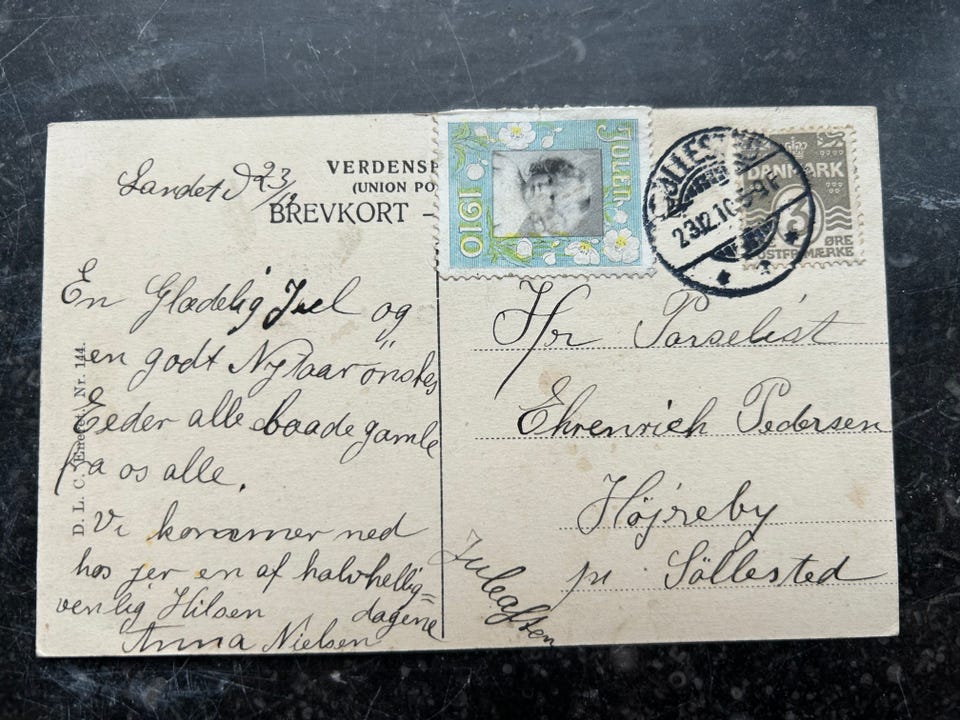 Landet d 23/12
VERDENSP
(UNION PO
BREVKORT –
JULEN
1910
SÖLLESTED
23.12.10
DANMARK
3
ØRE
POSTFRIMÆRKE
En Glædelig Juel og
en godt Nytaar önskes
Eeder alle baade gamle
fra os alle.
Vi kommer ned
hos jer en af halvhellig=
dagene
venlig Hilsen
Anna Nielsen
Juleaften
D. L. C. Eneret. Nr. 144.
Hr Parselist
Ehrenrich Pedersen
Højreby
pr. Söllested